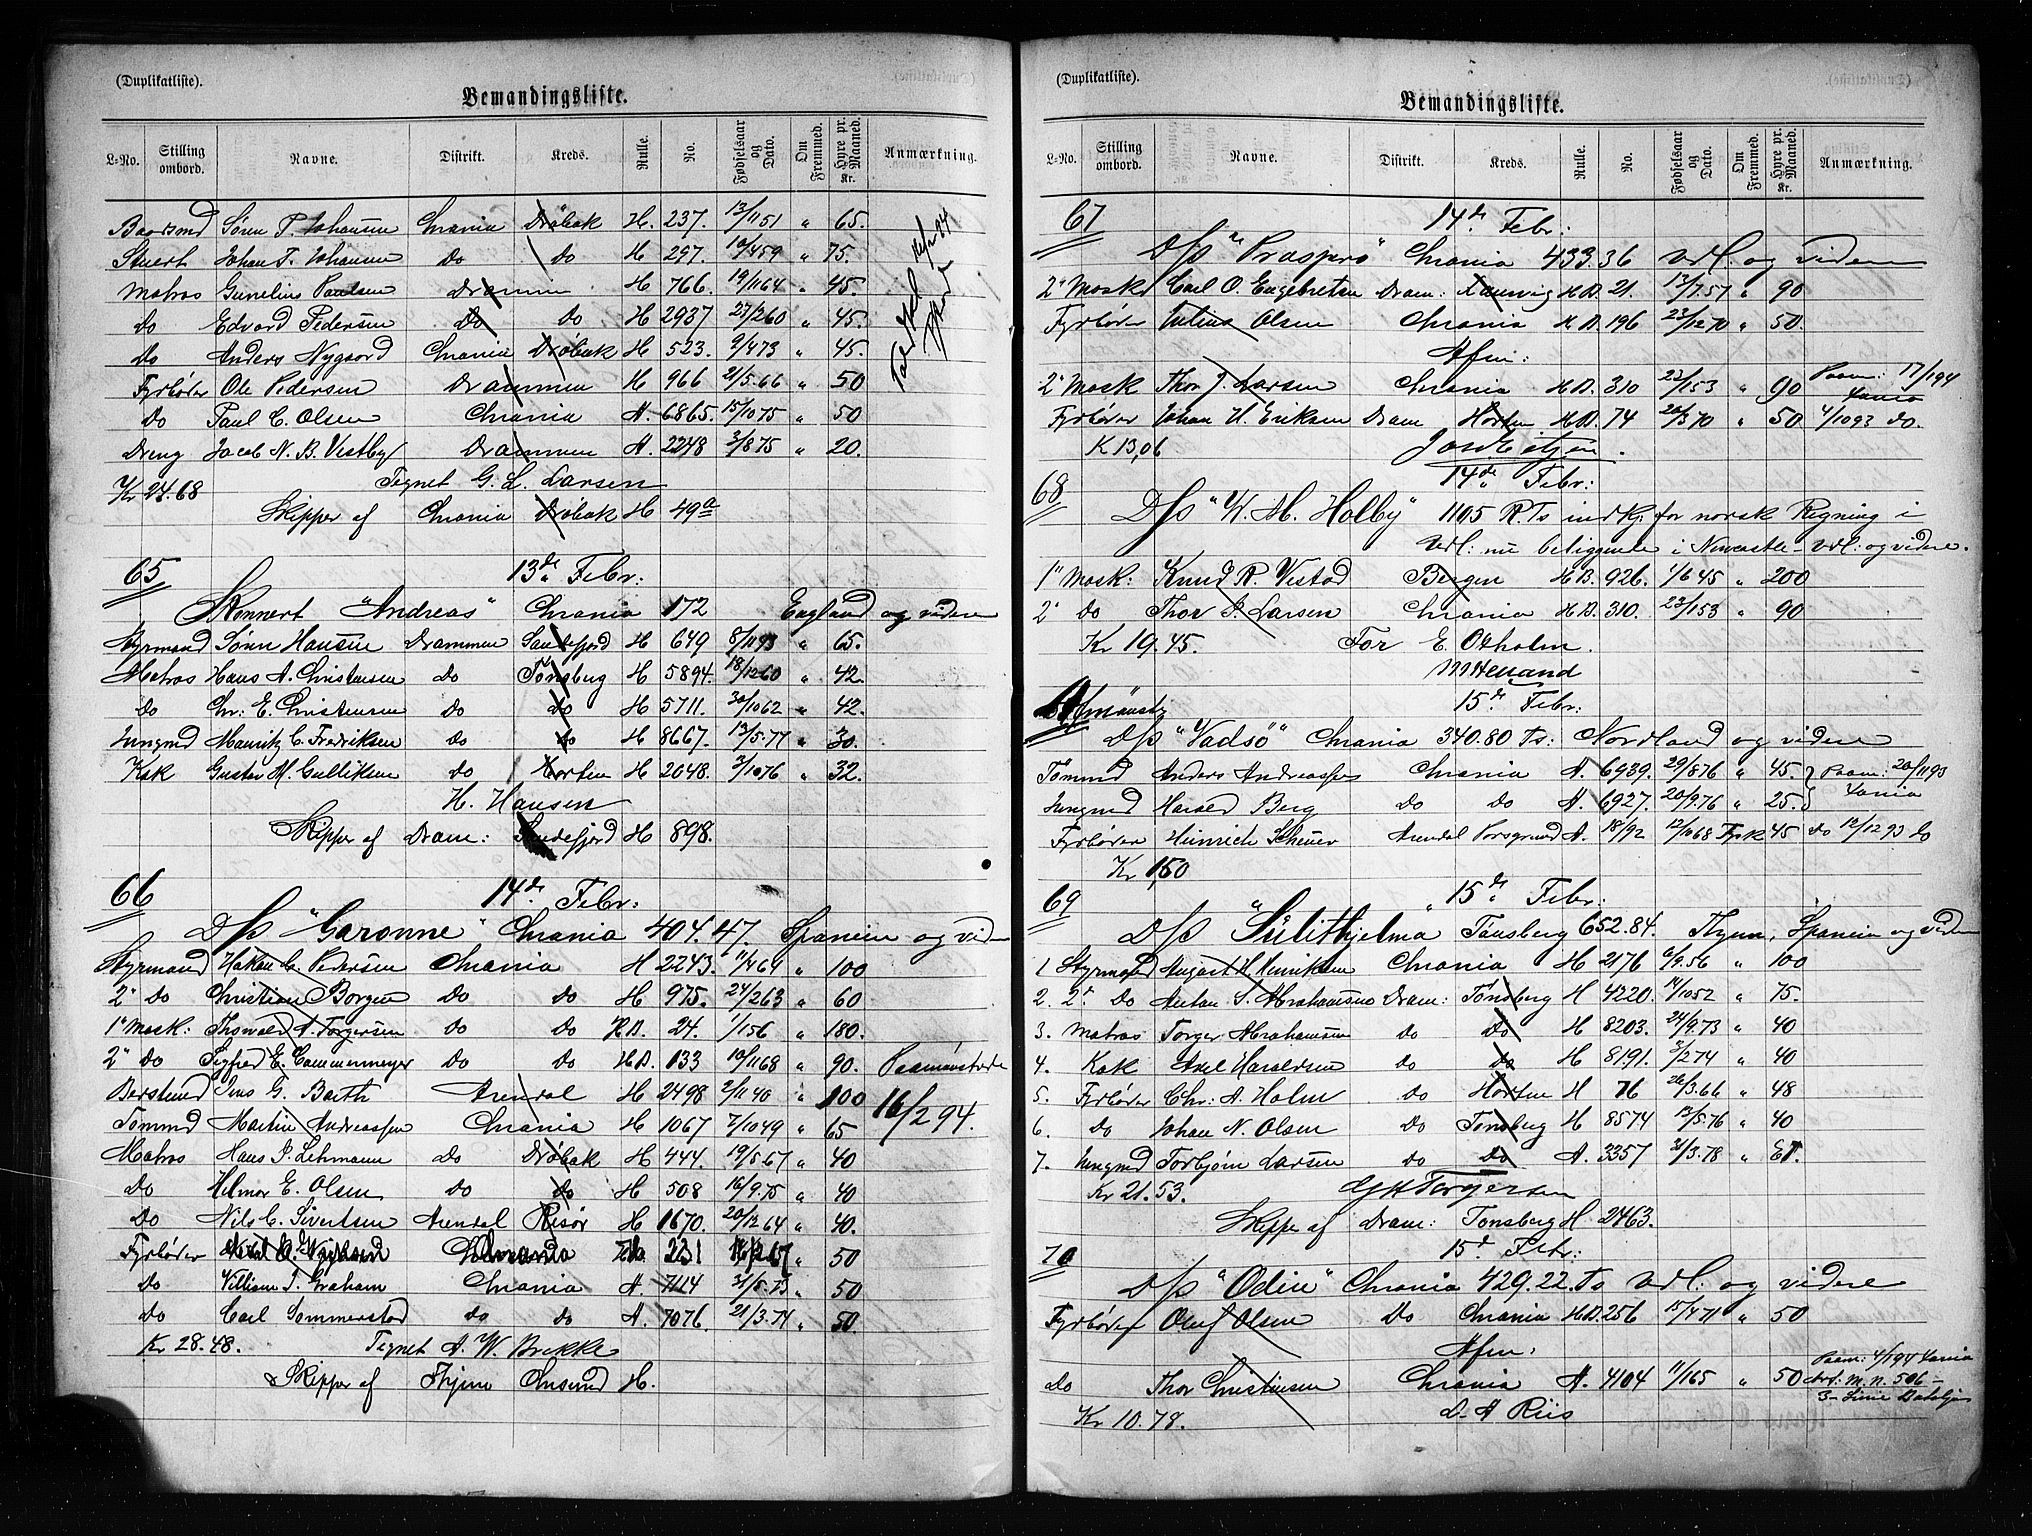 (Duplikatliste).
Bemandingsliste.
L-No. Stilling ombord. Navne. Distrikt. Kreds. Rulle. No. Fødselsaar og Dato. Om Fremmed. Hyre pr. Maaned. Kr. Anmærkning.
Baadsmd Søren P. Johansen Chrania Drøbak H. 237. 13/11 51 " 65.
Stuert Johan T. Johansen Do Do H 297. 10/4 59 " 75.
Matros Gunelius Paulsen Drammen H 766. 19/11 64 " 45.
Do Edvard Pedersen Do Do H 2937 23/2 60 " 45.
Do Anders Nygaard Chrania Drøbak H 523. 9/4 73 " 45.
Fyrbøder Ole Pedersen Drammen H 966 21/5.66 " 50
Do Paul C. Olsen Chrania A. 6865. 15/10 75 " 50
Dreng Jacob N. B. Vestby Drammen A. 2248 3/8 75 " 20.
Kr 24.68 Tegnet G. L. Larsen
Skipper af Chrania Drøbak H 49a
65 13de Febr:
Skonnert "Andreas" Chrania 172 England og videre
Styrmand Søren Hansen Drammen Sandefjord H 649 8/11 93 " 65.
Matros Hans A. Christensen Do Tønsberg H 5894. 18/12 60 " 42.
Do Chr: E. Christensen do do H 5711. 30/10 62 " 42.
Jungmd Mauritz C. Fredriksen do do H 8667. 13/5.77 " 30.
Kok Gustav M. Gulliksen do Horten H 2048. 3/10 76 " 32.
H. Hansen
Skipper af Dram: Sandefjord H 898.
66 14de Febr:
D/s "Garonne" Chrania 404.47. Spanien og vid
Styrmand Hakon C. Pedersen Chrania H 2243. 11/4 64 " 100
2" Do Christian Borgen Do Do H 975. 24/2 63 " 60
1" Mask: Thorvald A. Torgersen do Do H.D. 24. 1/1 56 " 180.
2" Do Sigfred E. Cammermeyer Do Do H.D. 133 10/11 68 " 90. Paamønstrede
Berstmd Jens G. Barth Arendal H 2498 2/11 40 " 100 16/2 94.
Tømmd Martin Andreassen Chrania H 1067 7/10 49 " 65
Matros Hans J. Lehmann do Drøbak H 444. 19/5.67 " 40
Do Hilmar E. Olsen do do H 508 16/9.75 " 40
Do Nils C. Sivertsen Arendal Risør H 1670. 20/12 64 " 40.
Fyrbøder Chrania 231 " 50
Do William J. Graham Chrania A. 7114 31/5.73 " 50
Do Carl Sommerstad do do A. 7076. 21/3.74 " 50.
Kr 28.48. Tegnet A. W. Brekke
Skipper af H.
(Duplikatliste).
Bemandingsliste.
L-No. Stilling ombord. Navne. Distrikt. Kreds. Rulle. No. Fødselsaar og Dato. Om Fremmed. Hyre pr. Maaned. Kr. Anmærkning.
67 14de Febr:
D/s "Prospero" Chrania 433.36 Udl. og videre
2" Mask Carl O. Engebretsen Dram: Laurvig H.D. 21. 13/7.57 " 90
Fyrbøder Julius Olsen Chrania H.D. 196 23/12 70 " 50.
Afm:
2" Mask Thor J. Larsen Chrania H.D. 310 23/1 53 " 90 Paam: 17/1 94 Xania
Fyrbøder Johan H. Eriksen Dram Horten H.D. 74 20/3 70 " 50 4/10 93 do.
K 13,06
68 14de Febr:
D/s "W. M. Holby" 1105 R.Ts indkj: for norsk Regning i
Udl: nu beliggende i Newcastle - Udl: og videre.
1" Mask: Knud R. Vestad Bergen H.D. 926. 1/6 45 " 200
2" Do Thor J. Larsen Chrania H.D. 310. 23/1 53 " 90
Kr 19.45. For E. Otholm.
15de Febr:
D/s "Vadsø" Chrania 340.80 Ts: Nordland og videre
Tømmd Anders Andreassen Chrania A. 6939. 29/8 76 " 45. Paam: 20/11 93
Jungmd Harald Berg Do Do A. 6927. 20/9.76 " 25. Xania
Fyrbøder Heinrich Scheuer Arendal Porsgrund A. 18/92 12/11 68 Tysk 45 do 12/12 93 do
Kr 1,50
69 15de Febr:
D/s "Sulithjelma" Tønsberg 652.84. Thynn, Spanien og videre
1 Styrmand August H. Henriksen Chrania H 2176 6/9.56 " 100
2. 2" Do Anton S. Abrahamsen Dram: Tønsberg H 4220. 11/10 52 " 75.
3. Matros Torger Abrahamsen do Do H 8203. 24/9.73 " 40
4. Kok Axel Haraldsen do do H 8191. 3/2 74 " 40
5. Fyrbøder Chr: A. Holm do Horten H 76 26/3.66 " 48
6. Do Johan N. Olsen Do Tønsberg H 8574 13/5.76 " 40
7. Jungmd Torbjørn Larsen do Do A. 3357 31/3.78 "
Kr 21.53. Torgersen
Skipper af Dram: Tønsberg H 2463.
70 15d Febr:
D/s "Odin" Chrania 429.22. Ts Udl: og videre
Fyrbøder Oluf Olsen Do Chrania H.D. 256 15/4 71 " 50
Afm:
do Thor Christensen Chrania A. 4104 11/1 65 " 50 Paam: 4/1 94 Xania
Kr 10.78. D. A Riis